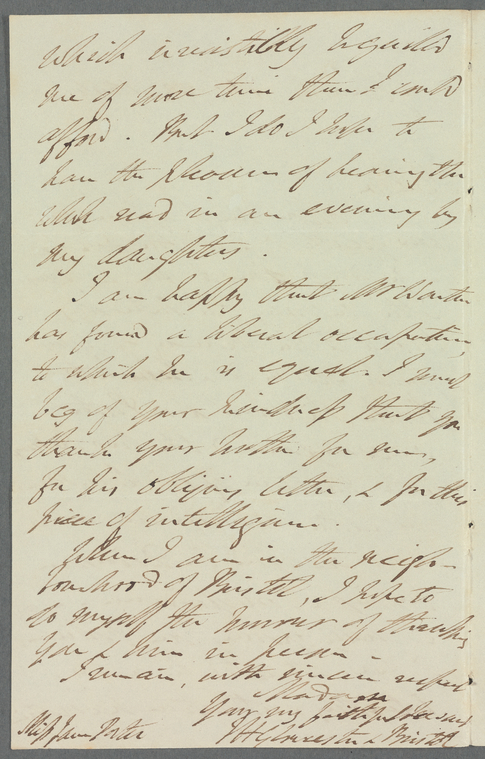 which irresistibly beguiled
me of more time than I could
afford. But I do hope to
have the pleasure of hearing the
whole read in an evening by
my daughters.
I am happy that Mr
has found a liberal occupation,
to which he is equal. I must
beg of your kindness that you
thank your brother for me,
for his obliging letter, & for this
piece of intelligence.
When I am in the neigh-
bourhood of Bristol, I hope to
do myself the honour of thanking
you & him in person.
I remain, with sincere respect
Madam
Your faithful servant
J H Gloucester & Bristol
Miss Jane Porter